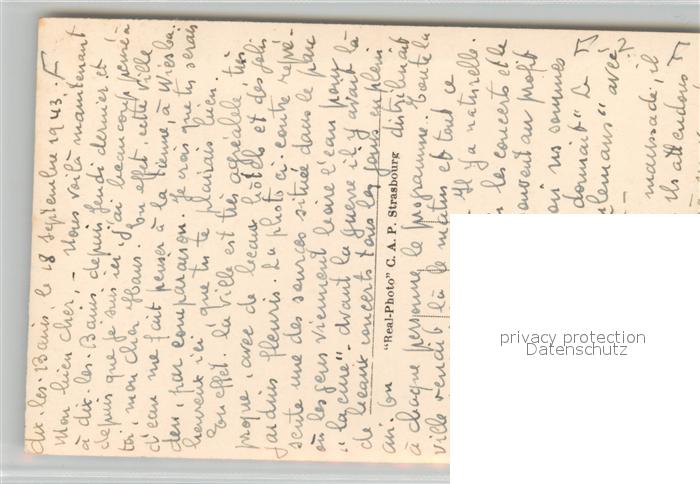 Aix-les-Bains, le 18 septembre 1943.
Mon bien cher, - Nous voilà maintenant
à Aix-les-Bains, depuis jeudi dernier et
depuis que je suis ici j'ai beaucoup pensé à
toi, mon cher Hans. En effet, cette ville
d'eau me fait penser à la tienne, à Wiesba-
den, par comparaison. Je crois que tu serais
heureux ici que tu te plairais bien.
En effet. La ville est très agréable très
propre, avec de beaux hôtels et des jolis
jardins fleuris. La photo ci-contre repré-
sente une des sources située dans le parc
où les gens viennent boire l'eau pour
"la cure". Avant la guerre il y avait là
de beaux concerts tous les jours en plein
air, on distribuait
à chaque personne le programme. Toute la
ville
le matin et tout ce
Il y a naturelle-
les concerts et le
souvent au profit
où nous sommes
donnait "La
" avec
maussade, il
Ils attendons
"Real-Photo" C. A. P. Strasbourg
privacy protection
Datenschutz